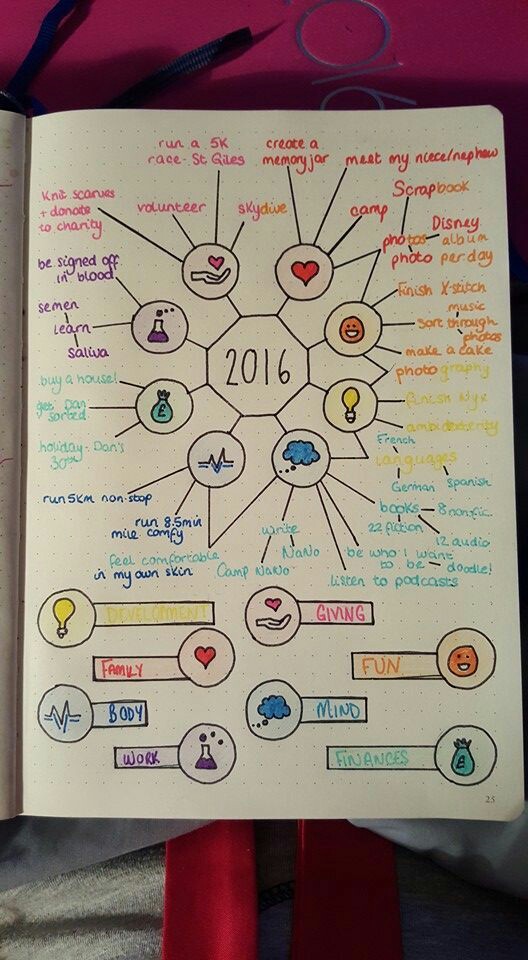 run a 5K
race - St Giles
create a
memory jar
meet my niece/nephew
Knit scarves
+ donate
to charity
volunteer
skydive
camp
Scrapbook
Disney
photos album
photo per day
be signed off
in blood
semen
learn
saliva
finish X-stitch
music
sort through
photos
make a cake
2016
buy a house!
get Dan
sorted
holiday - Dan's
30th
photography
finish Nyx
ambidexterity
French
languages
German
Spanish
run 5km non-stop
run 8.5min
mile comfy
feel comfortable
in my own skin
write
NaNo
Camp NaNo
books - 8 nonfic.
22 fiction
12 audio
be who I want
to be - doodle!
listen to podcasts
DEVELOPMENT
GIVING
FAMILY
FUN
BODY
MIND
WORK
£
FINANCES
£
25